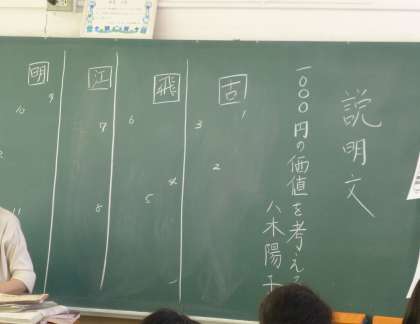 説明文
一〇〇〇円の価値を考える
八木陽子
古
1
2
3
飛
4
5
6
江
7
8
明
9
10
11